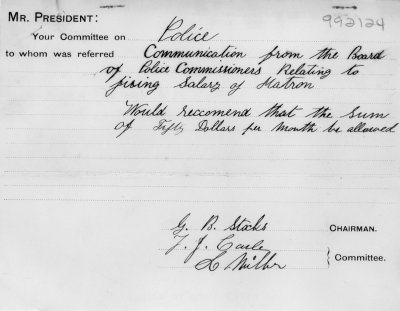 MR. PRESIDENT:
992124
Your Committee on Police
to whom was referred Communication from the Board
of Police Commissioners Relating to
fixing Salary of Matron
Would reccomend that the sum
of Fifty Dollars per Month be allowed
G. B. Stocks CHAIRMAN.
T. J.
L Miller Committee.